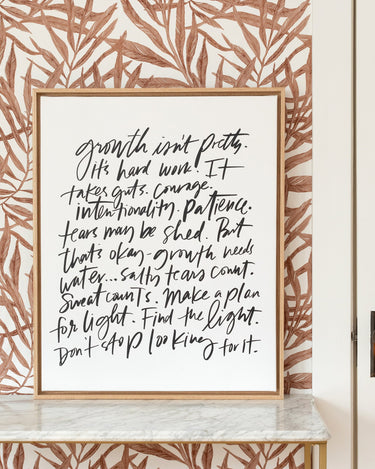 growth isn't pretty.
it's hard work. It
takes guts. courage.
intentionality. patience.
tears may be shed. But
that's okay-growth needs
water...salty tears count.
Sweat counts. Make a plan
for light. Find the light.
Don't stop looking for it.